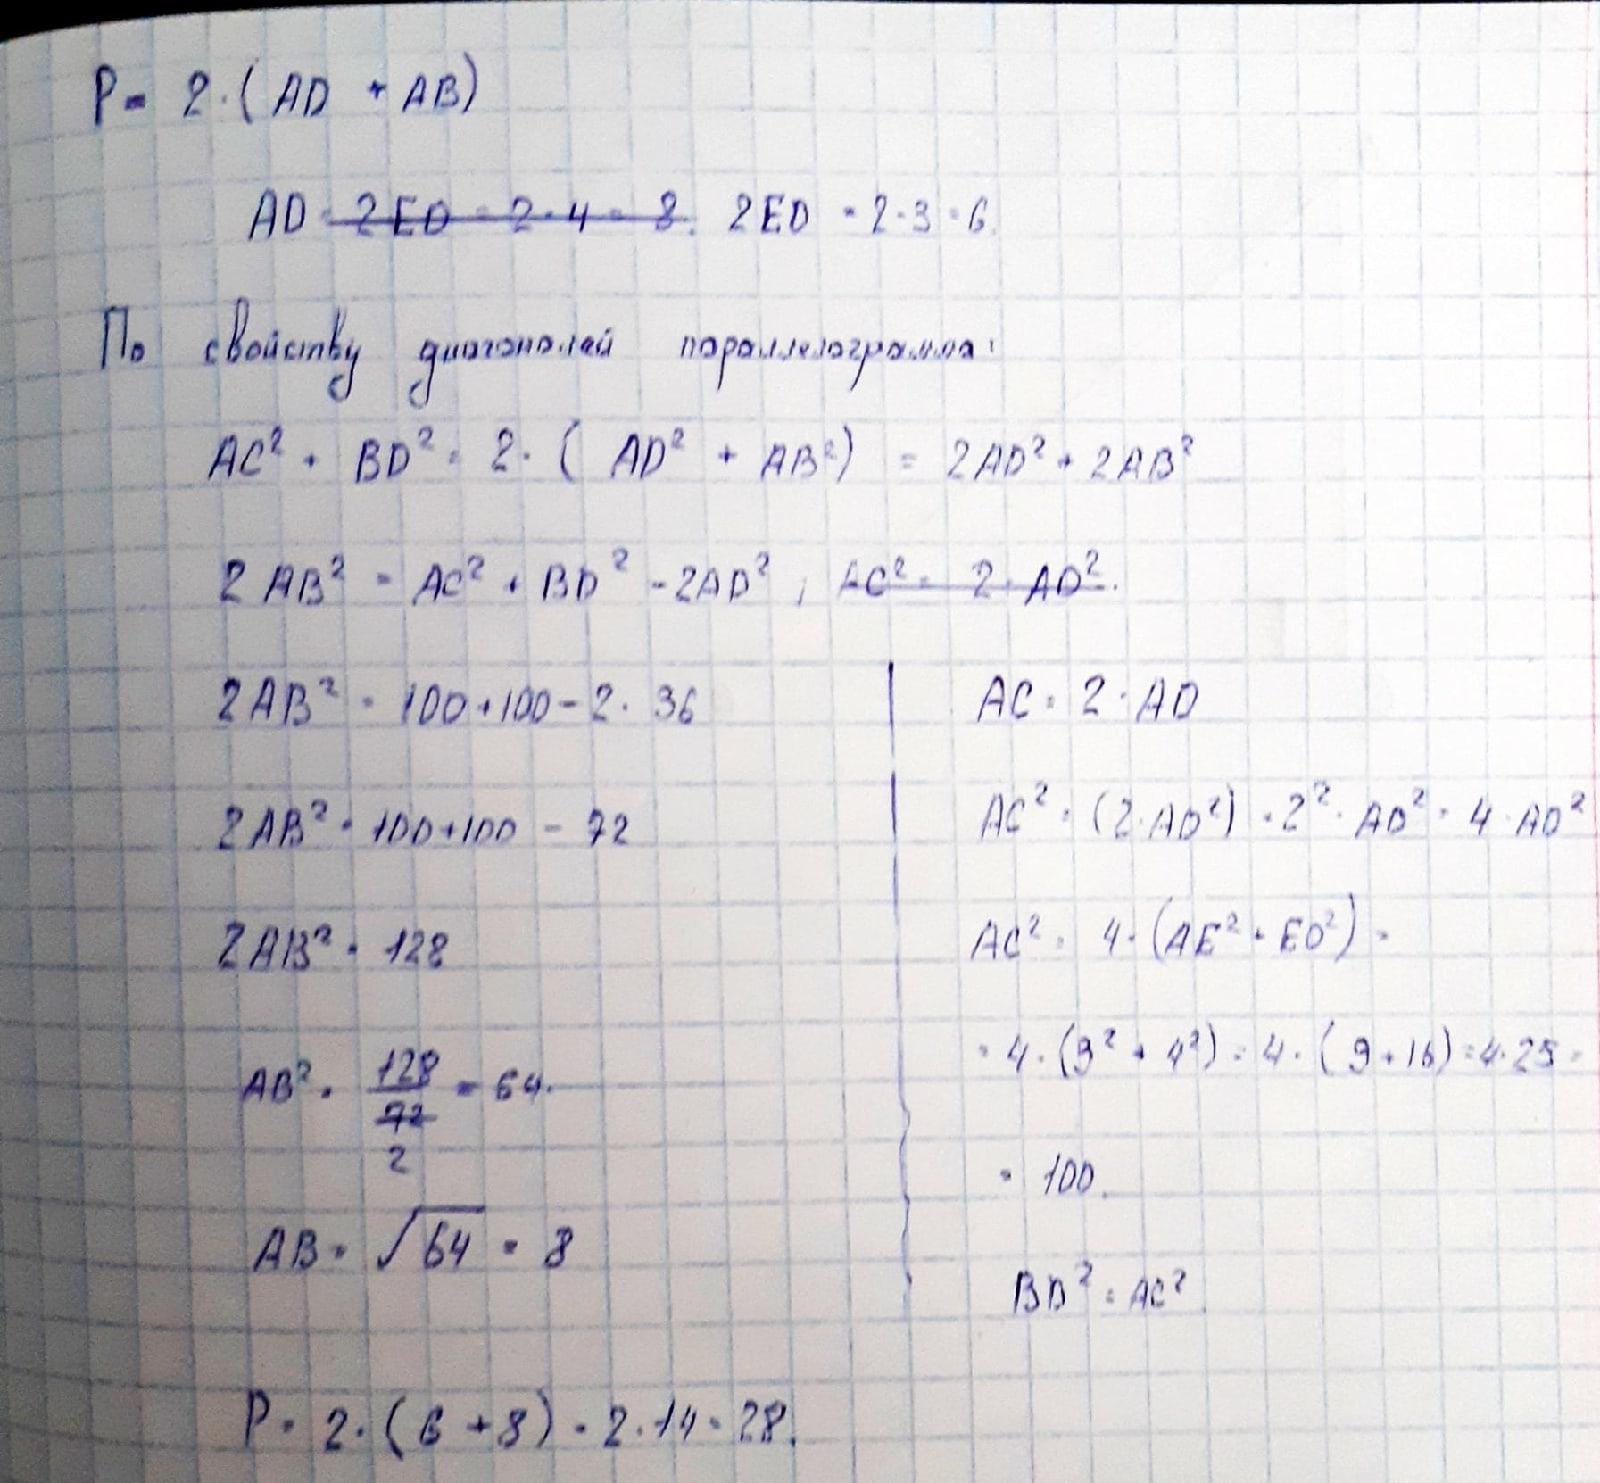 P = 2·(AD + AB)
AD = 2ED = 2·4 = 8. 2ED = 2·3 = 6.
По свойству диагоналей параллелограмма:
AC² + BD² = 2·(AD² + AB²) = 2AD² + 2AB²
2AB² = AC² + BD² - 2AD²; AC² = 2·AD².
2AB² = 100 + 100 - 2·36
2AB² = 100 + 100 - 72
2AB² = 128
AB² = 128/72 2 = 64.
AB = √64 = 8
AC = 2·AO
AC² = (2·AO²) = 2²·AO² = 4·AO²
AC² = 4·(AE² + EO²) =
= 4·(3² + 4²) = 4·(9 + 16) = 4·25 =
= 100.
BD² = AC²
P = 2·(6 + 8) = 2·14 = 28.